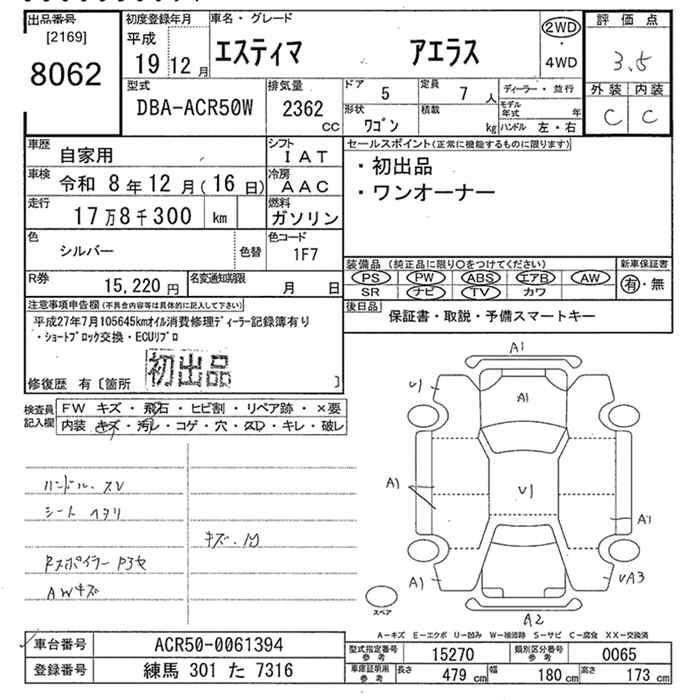 出品番号
[2169]
8062
初度登録年月
平成
19 12 月
車名・グレード
エスティマ アエラス
2WD
・
4WD
評価点
3.5
外装 内装
C C
型式
DBA-ACR50W
排気量
2362
cc
ドア 5
定員 7 人
形状 ワゴン
積載 kg
ディーラー・並行
モデル年式 年
ハンドル 左・右
車歴 自家用
シフト IAT
車検 令和 8年12月(16日)
冷房 AAC
走行 17万8千300 km
燃料 ガソリン
色 シルバー 色替
色コード 1F7
R券 15,220円
名変通知期限 月 日
セールスポイント(正常に機能するものに限ります)
・初出品
・ワンオーナー
装備品 (純正品に限り○をつけてください)
PS PW ABS エアB AW
SR ナビ TV カワ
新車保証書
有・無
後日品
保証書・取説・予備スマートキー
注意事項申告欄(不具合内容等は具体的に記入して下さい)
平成27年7月105645kmオイル消費修理ディーラー記録簿有り
・ショートブロック交換・ECUリプロ
初出品
修復歴 有〔箇所 〕
検査員記入欄
FW キズ・飛石・ヒビ割・リペア跡・×要
内装 キズ・汚レ・コゲ・穴・スレ・キレ・破レ
ハンドル.スレ
シート ヘタリ
キズ.汚
Rスポイラー P3セ
AWキズ
A1
U1
A1
A1
U1
A1
A1
UA3
A2
スペア
A-キズ E-エクボ U-凹み W-補修跡 S-サビ C-腐食 XX-交換済
車台番号 ACR50-0061394
登録番号 練馬 301 た 7316
型式指定番号 参考 15270
類別区分番号 参考 0065
車庫証明用 参考
長さ 479 cm
幅 180 cm
高さ 173 cm